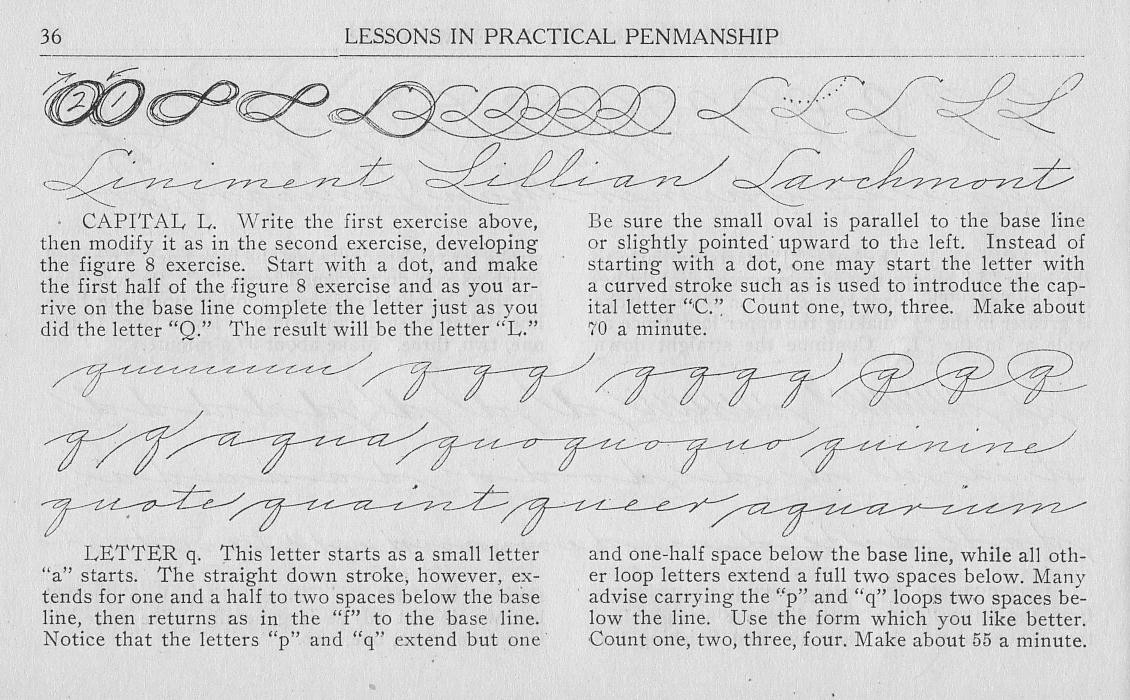 36
LESSONS IN PRACTICAL PENMANSHIP
2 1 L L L L L
Liniment Lillian Larchmont
CAPITAL L. Write the first exercise above,
then modify it as in the second exercise, developing
the figure 8 exercise. Start with a dot, and make
the first half of the figure 8 exercise and as you ar-
rive on the base line complete the letter just as you
did the letter "Q." The result will be the letter "L."
Be sure the small oval is parallel to the base line
or slightly pointed upward to the left. Instead of
starting with a dot, one may start the letter with
a curved stroke such as is used to introduce the cap-
ital letter "C." Count one, two, three. Make about
70 a minute.
q q q q q q q q q q q
q q aqua quoquoquo quinine
quote quaint queer aquarium
LETTER q. This letter starts as a small letter
"a" starts. The straight down stroke, however, ex-
tends for one and a half to two spaces below the base
line, then returns as in the "f" to the base line.
Notice that the letters "p" and "q" extend but one
and one-half space below the base line, while all oth-
er loop letters extend a full two spaces below. Many
advise carrying the "p" and "q" loops two spaces be-
low the line. Use the form which you like better.
Count one, two, three, four. Make about 55 a minute.